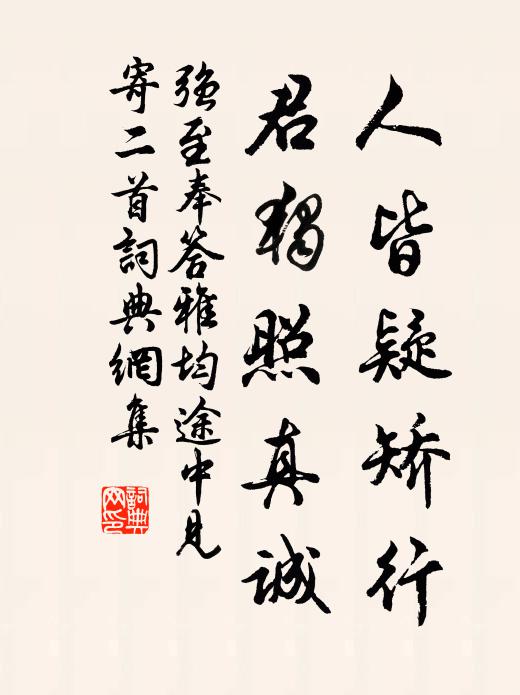 人皆疑矫行
君独照真诚
强至奉答雅均途中见
寄二首詞典網集
詞典
网印